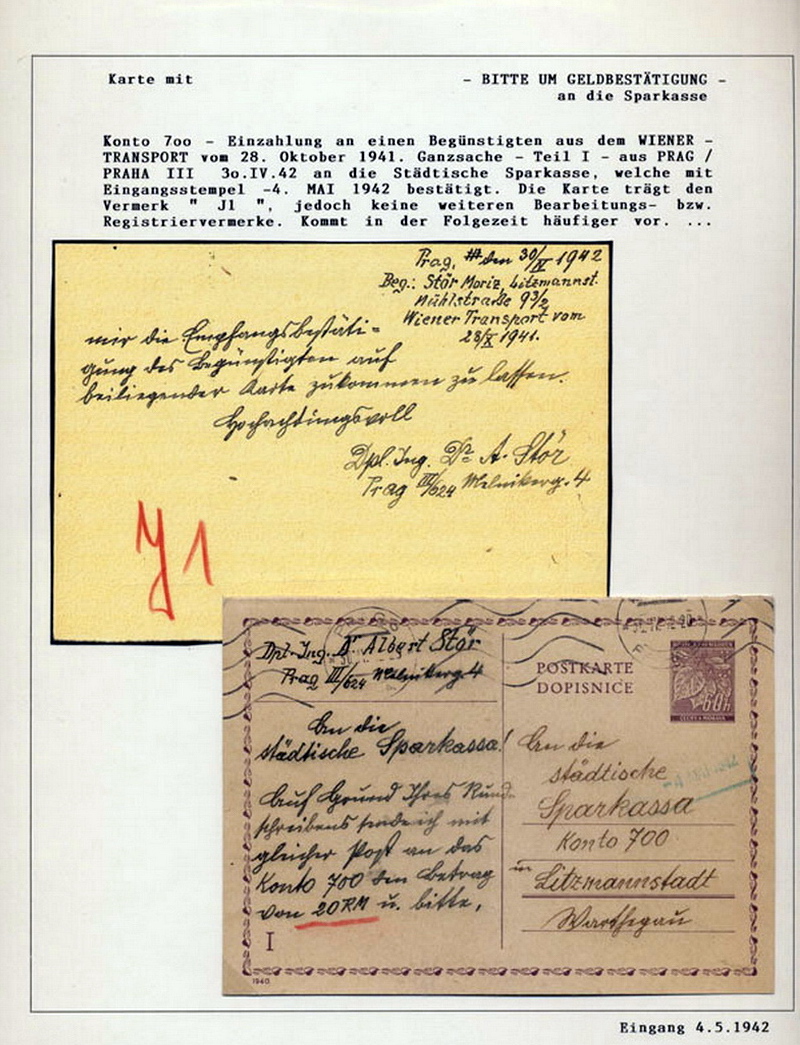 Karte mit
- BITTE UM GELDBESTÄTIGUNG -
an die Sparkasse
Konto 7oo - Einzahlung an einen Begünstigten aus dem WIENER -
TRANSPORT vom 28. Oktober 1941. Ganzsache - Teil I - aus PRAG /
PRAHA III 3o.IV.42 an die Städtische Sparkasse, welche mit
Eingangsstempel -4. MAI 1942 bestätigt. Die Karte trägt den
Vermerk " J1 ", jedoch keine weiteren Bearbeitungs- bzw.
Registriervermerke. Kommt in der Folgezeit häufiger vor. ...
Prag, den 30/IV 1942
Beg.: Stör Moriz, Litzmannst.
Mühlstraße 93/2
Wiener Transport vom
28/X 1941.
mir die Empfangsbestäti=
gung des Begünstigten auf
beiliegender Karte zukommen zu lassen.
Hochachtungsvoll
Dpl. Ing. Dr A. Stör
Prag III/624 Melnikerg. 4
J1
Dpl.-Ing. Dr Albert Stör
Prag III/624 Melnikerg. 4
An die
städtische Sparkassa!
Auf Grund Ihres Rund-
schreibens sende ich mit
gleicher Post an das
Konto 700 den Betrag
von 20 RM u. bitte,
I
1940.
POSTKARTE
DOPISNICE
60h
ČECHY A MORAVA
An die
städtische
Sparkassa
Konto 700
in Litzmannstadt
Warthegau
-4. MAI 1942
Eingang 4.5.1942